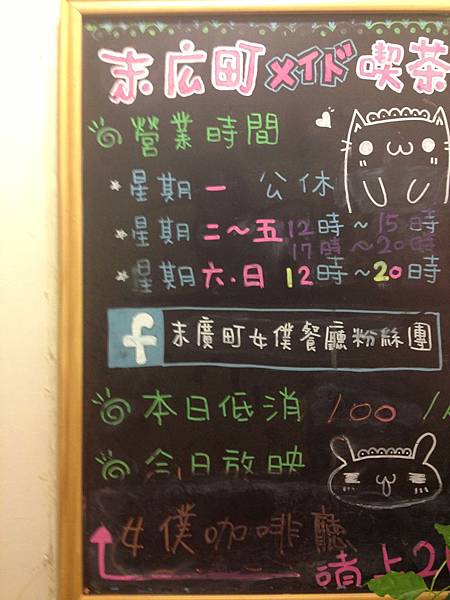 末広町メイド喫茶
營業時間
*星期一 公休
*星期二~五 12時~15時
17時~20時
*星期六.日 12時~20時
f 末廣町女僕餐廳粉絲團
本日低消 100 /
今日放映
女僕咖啡廳
請上2